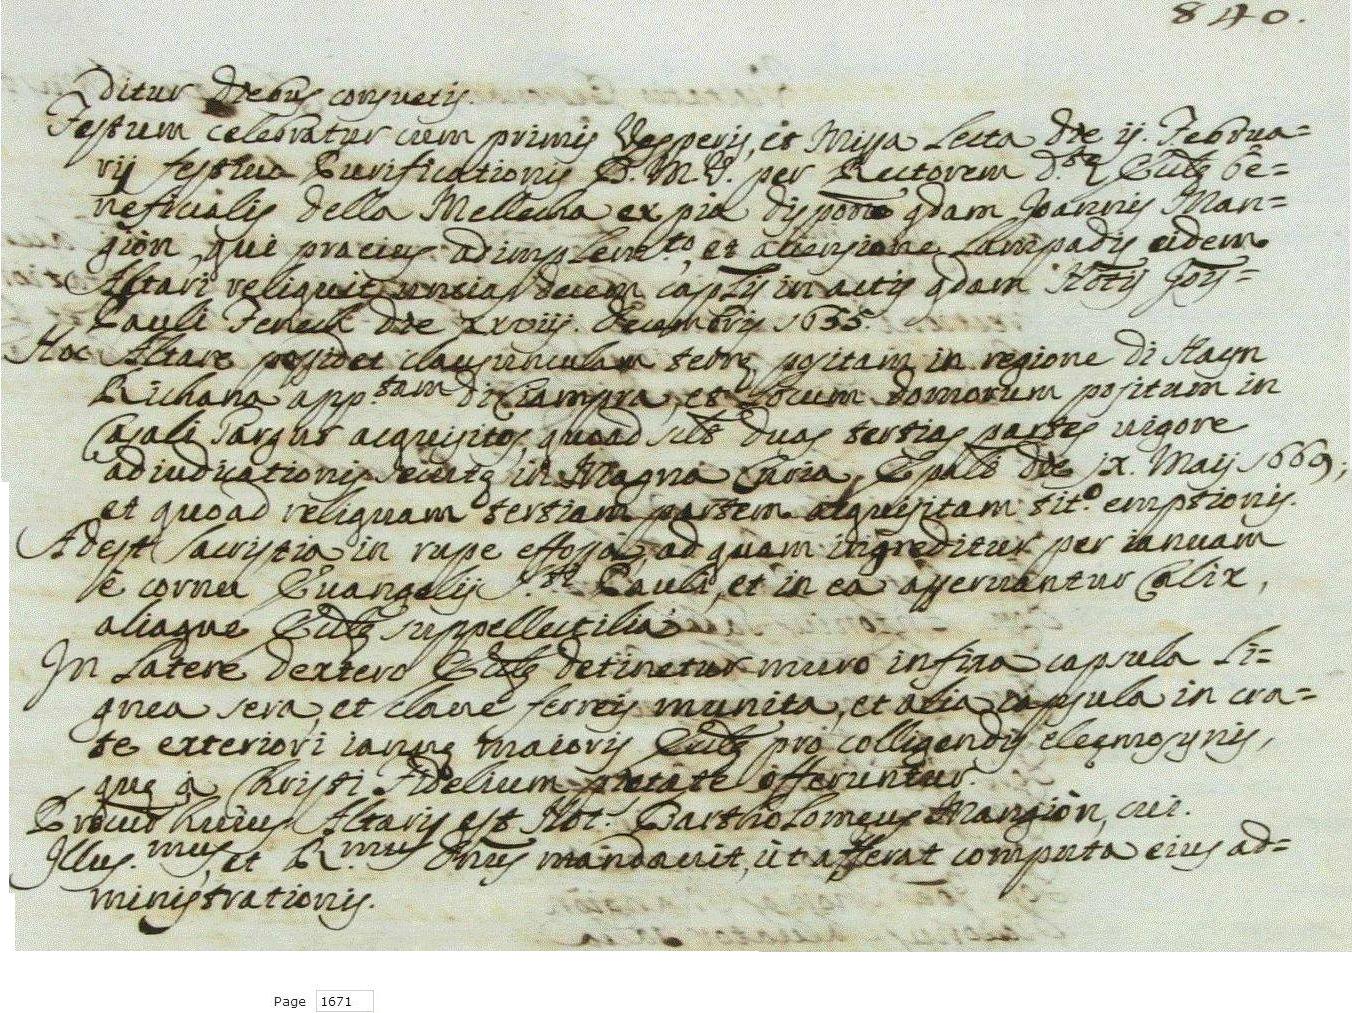 840.
ditur diebus consuetis.
Festum celebratur cum primis Vesperis, et Missa Lecta die ij. Februa=
rij festiva Purificationis B. M. V. per Rectorem d. Ecclę be=
neficialis della Mellecha ex pia dispone qdam Joannis Man=
gion, qui pro eius adimplem.to, et accensione Lampadis eidem
Altari reliquit uncias decem in actis qdam Notij Jois=
Pauli Fenech die xxviij. Decembris 1655.
Hoc Altare possidet clausunculam terrę positam in regione di Hayn
Richana app.tam di Ciampra, et Locum domorum positum in
Casali Targa acquisitos, quoad duas tertias partes vigore
adiudicationis secutę in Magna Curia Epali die ix. Maij 1669,
et quoad reliquam tertiam partem acquisitam tit.o emptionis.
Adest Sacristia in rupe effossa, ad quam ingreditur per ianuam
è cornu Euangelij S.ti Pauli, et in ea asseruantur Calix,
aliaque Ecclę suppellectilia.
In Latere dextero Ecclę detinetur muro infixa capsula Li=
gnea sera, et claue ferreis munita, et alia capsula in cra=
te exteriori ianuę maioris Ecclę pro colligendis eleęmosynis,
quę à Christi Fidelium pietate offeruntur.
Procur huius Altaris est Not.s Bartholomęus Mangion, cui
Illus.mus, et R.mus Dnus mandauit, ut afferat computa eius ad=
ministrationis.
Page 1671